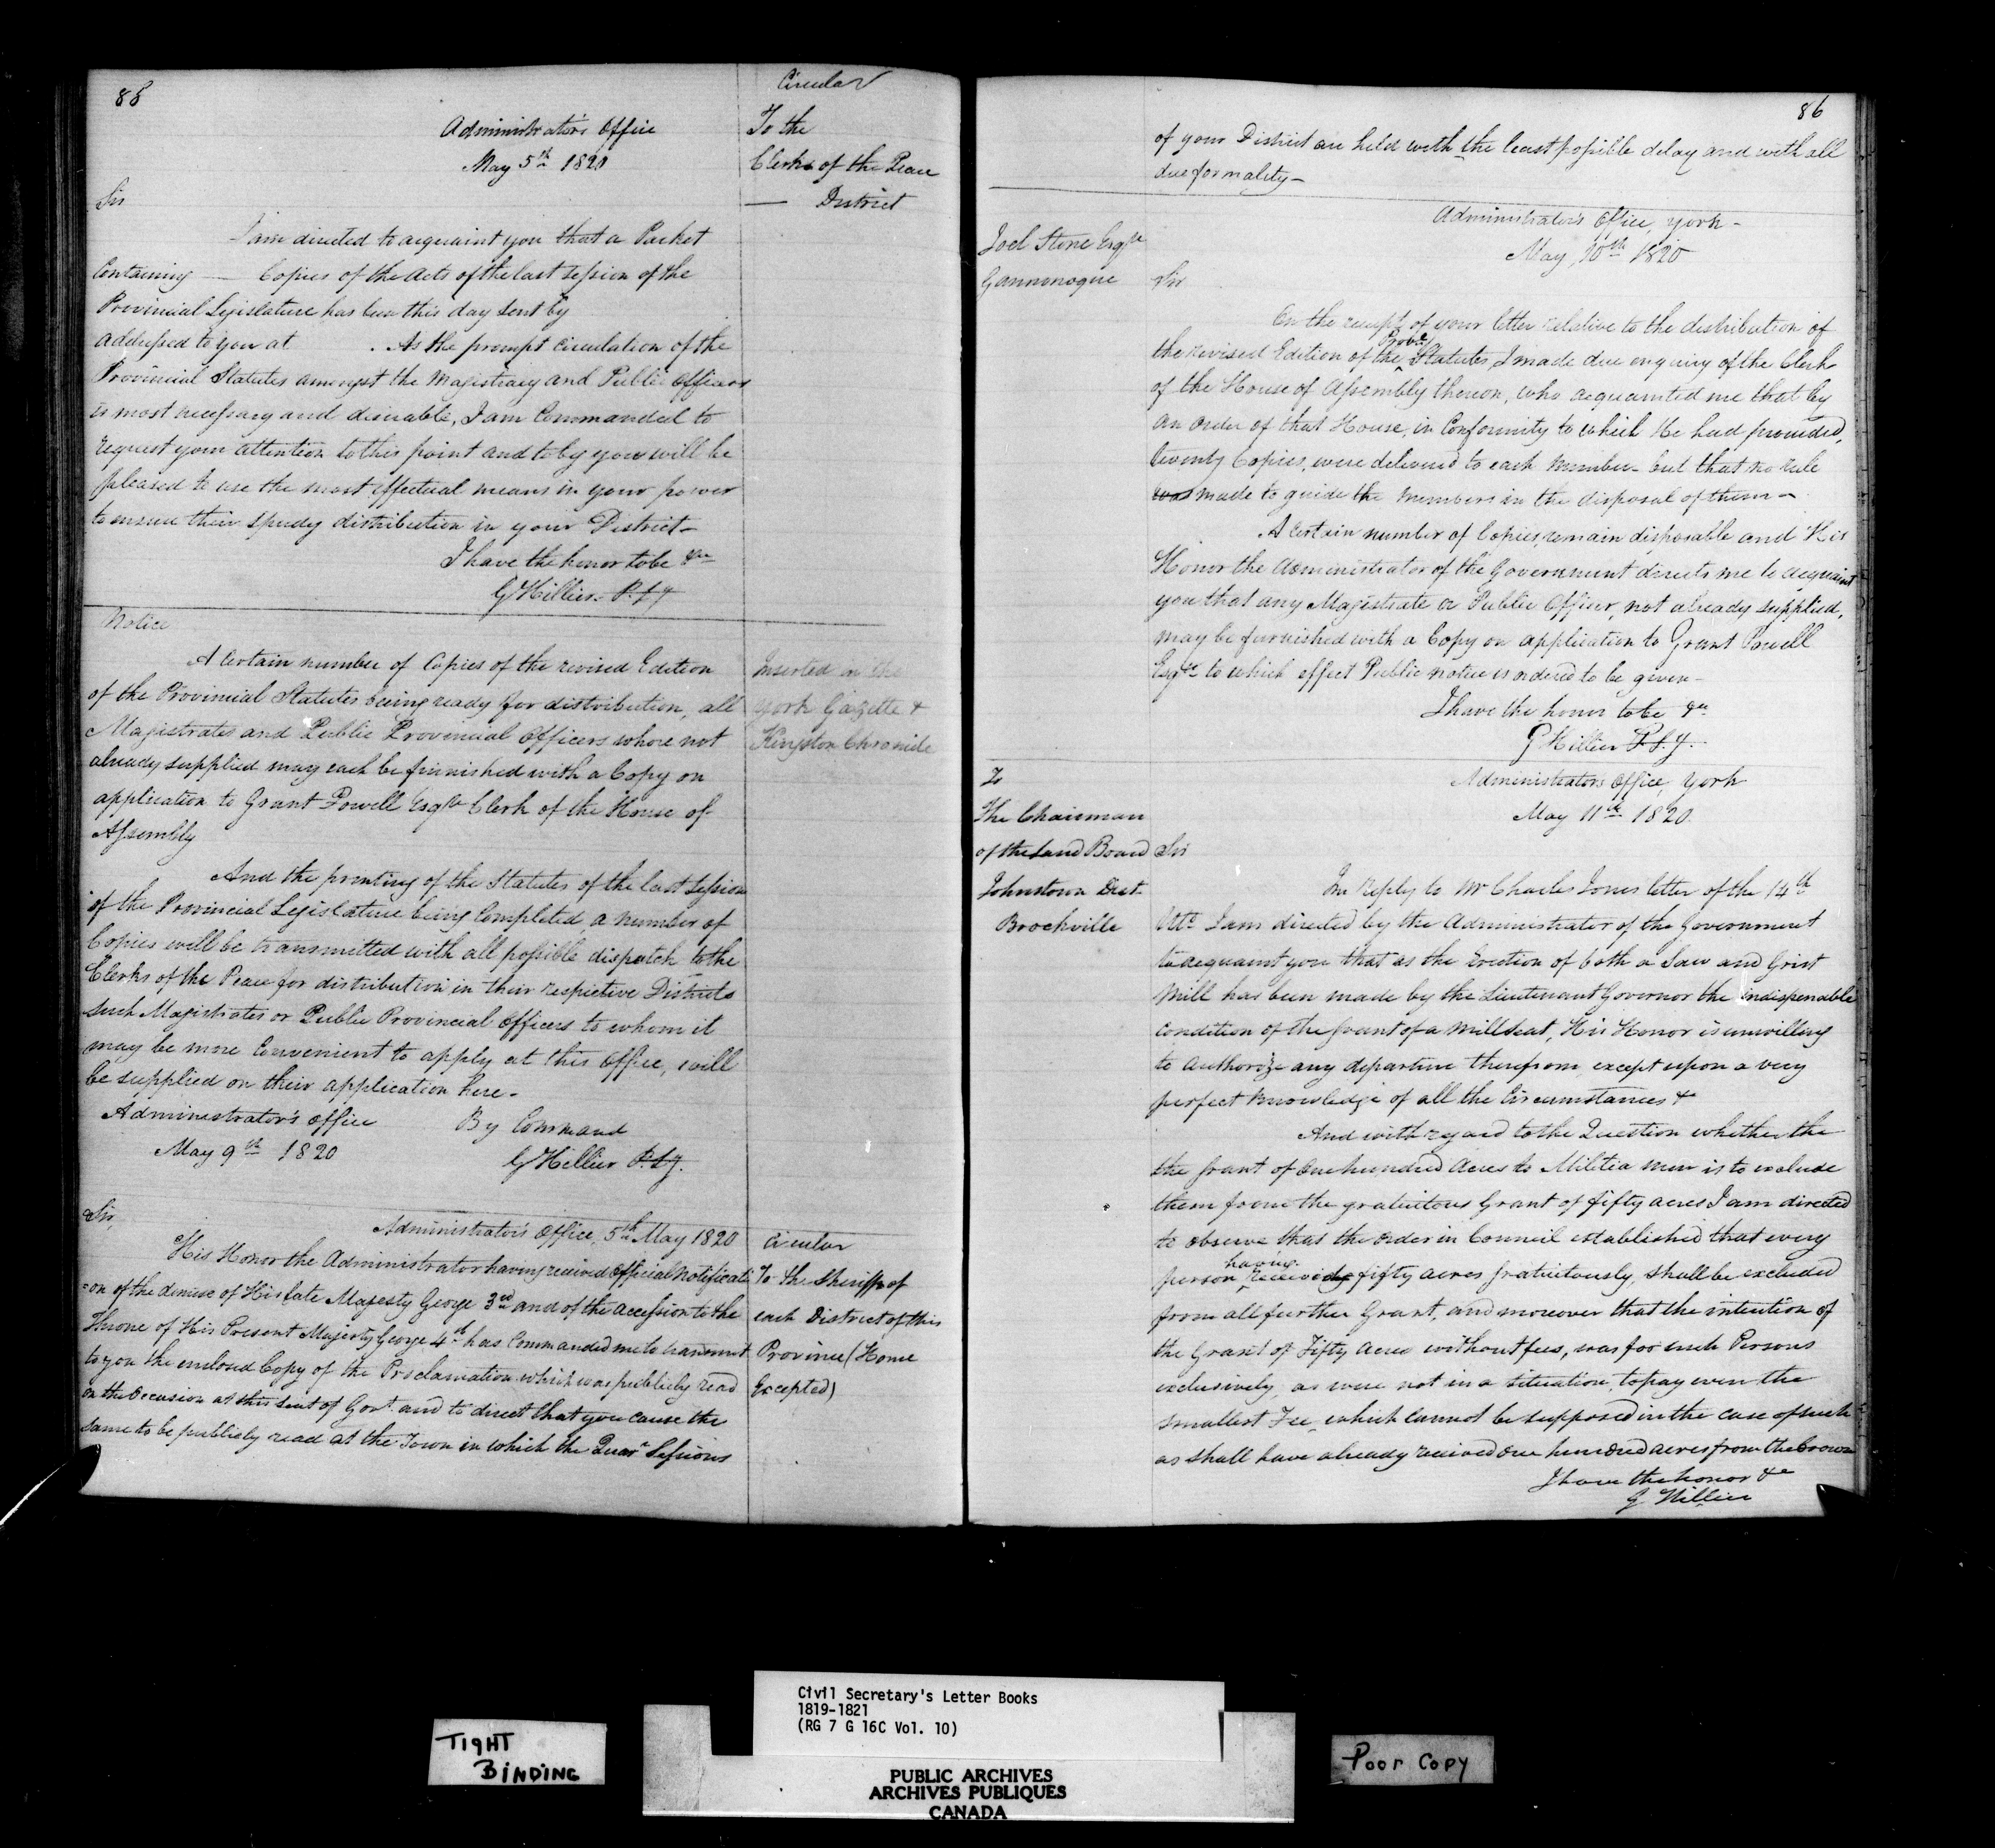 88
Circular
Administrator's Office
May 5th 1820
To the
Clerks of the Peace
— District
Sir
I am directed to acquaint you that a Packet
Containing — Copies of the Acts of the last Session of the
Provincial Legislature has been this day sent by
addressed to you at . As the prompt circulation of the
Provincial Statutes amongst the Magistracy and Public Officers
is most necessary and desirable, I am Commanded to
request your attention to this point and to beg you will be
pleased to use the most effectual means in your power
to ensure their speedy distribution in your District—
I have the honor to be &c
G Hillier P.S.
Notice
A Certain number of Copies of the revised Edition
of the Provincial Statutes being ready for distribution, all
Magistrates and Public Provincial Officers who're not
already supplied may each be furnished with a Copy on
application to Grant Powell Esqre Clerk of the House of
Assembly
Inserted in the
York Gazette &
Kingston Chronicle
And the printing of the Statutes of the last Session
of the Provincial Legislature being Completed, a number of
Copies will be transmitted with all possible dispatch to the
Clerks of the Peace for distribution in their respective Districts
such Magistrates or Public Provincial Officers to whom it
may be more Convenient to apply at this Office, will
be supplied on their application here—
Administrator's Office
May 9th 1820
By Command
G Hillier P.S.
Sir,
Administrator's Office, 5th May 1820
His Honor the Administrator having received Official Notificati
=on of the demise of His late Majesty George 3rd and of the accession to the
Throne of His Present Majesty George 4th has Commanded me to transmit
to you the enclosed Copy of the Proclamation which was publicly read
on the Occasion at this seat of Govt. and to direct that you cause the
same to be publicly read at the Town in which the Quarr Sessions
Circular
To the Sheriffs of
each District of this
Province (Home
Excepted)
86
of your District are held with the least possible delay and with all
due formality—
Administrator's Office, York—
May 10th 1820
Joel Stone Esqre
Gannonoque
Sir
On the receipt of your letter relative to the distribution of
the revised Edition of the Statutes, I made due enquiry of the Clerk
of the House of Assembly thereon, who acquainted me that by
an order of that House, in Conformity to which He had proceeded,
twenty Copies, were delivered to each Member— but that no rule
was made to guide the Members in the disposal of them—
A certain number of Copies, remain disposable and His
Honor the Administrator of the Government directs me to acquaint
you that any Magistrate or Public Officer, not already supplied,
may be furnished with a Copy on application to Grant Powell
Esqre to which effect Public notice is ordered to be given—
I have the honor to be &c
G Hillier P.S.
To
The Chairman
of the Land Board
Johnstown Dist.
Brockville
Administrators Office, York
May 11th 1820
Sir
In reply to Mr Charles Jones letter of the 14th
Ulto I am directed by the Administrator of the Government
to acquaint you that as the Erection of both a Saw and Grist
Mill has been made by the Lieutenant Governor the indispenable
condition of the Grant of a Mill Seat, His Honor is unwilling
to authorize any departure therefrom, except upon a very
perfect knowledge of all the Circumstances &
And with regard to the Question whether the
the Grant of One hundred Acres to Militia men is to exclude
them from the gratuitous Grant of fifty acres I am directed
to observe that the order in Council established that every
having
person received fifty acres gratuitously, shall be excluded
from all further Grant, and moreover that the intention of
the Grant of Fifty Acres without fees, was for such Persons
exclusively, as were not in a situation, to pay even the
smallest Fee, which cannot be supposed in the case of such
as shall have already received one hundred acres from the Crown
I have the honor &c
G Hillier
TIGHT
BINDING
Civil Secretary's Letter Books
1819-1821
(RG 7 G 16C Vol. 10)
PUBLIC ARCHIVES
ARCHIVES PUBLIQUES
CANADA
Poor Copy